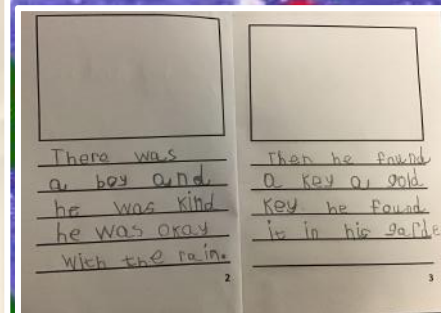 There was
a boy and
he was kind
he was okay
with the rain.
2
Then he found
a key a gold
key. he found
it in his garde
3